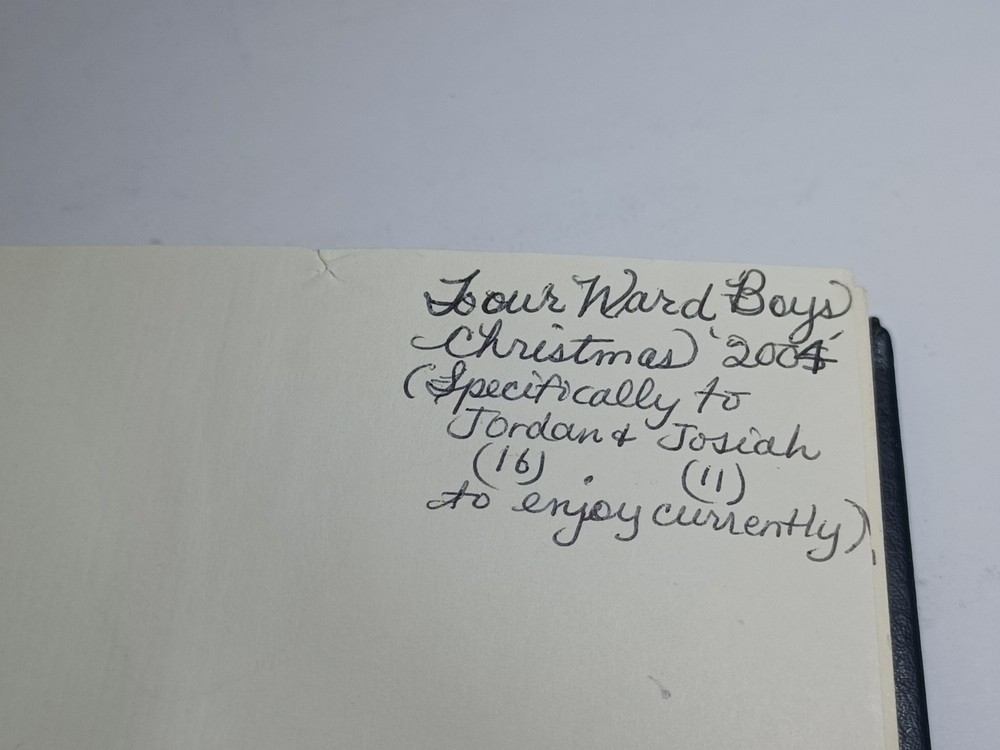 Four Ward Boys
Christmas '2004'
(Specifically to
Jordan & Josiah
(16) (11)
to enjoy currently).